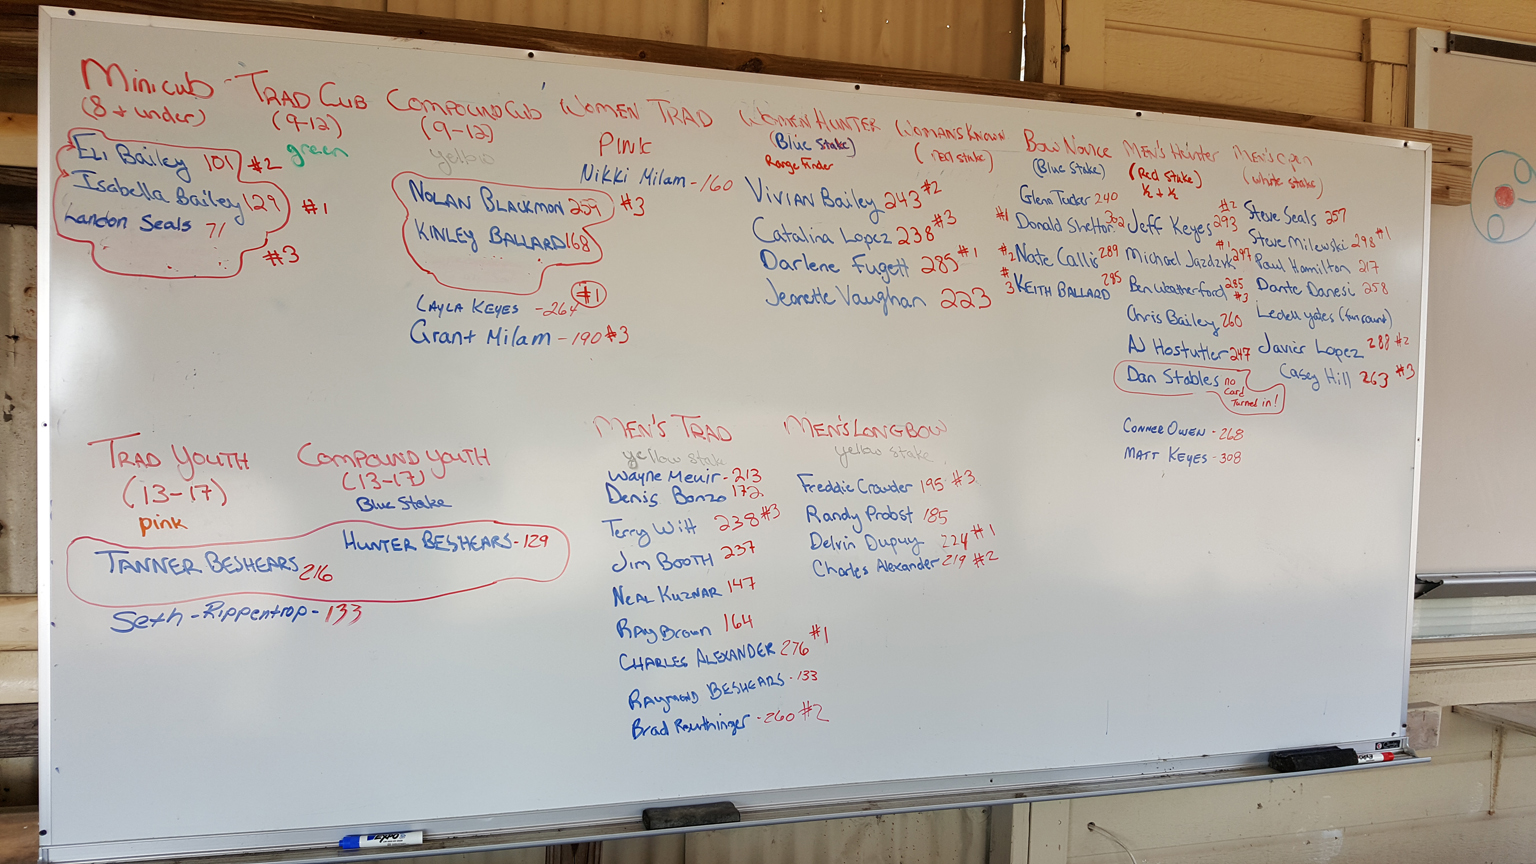 Mini cub - (8 + under)
Eli Bailey 101 #2
Isabella Bailey 129 #1
Landon Seals 71 #3
TRAD CUB
(9-12)
green
COMPOUND CUB
(9-12)
yellow
NOLAN BLACKMON 259 #3
KINLEY BALLARD 168
LAYLA KEYES -264 #1
Grant Milam - 190 #3
WOMEN TRAD
PINK
Nikki Milam - 160
WOMEN HUNTER
(Blue Stake)
Range Finder
Vivian Bailey 243 #2
Catalina Lopez 238 #3
Darlene Fugett 285 #1
Jeanette Vaughan 223
WOMANS KNOWN
(red stake)
BOW NOVICE
(Blue Stake)
Glenn Tucker 240
#1 Donald Shelton 302
#2 Nate Callis 289
#3 KEITH BALLARD 285
MEN'S HUNTER
(Red stake)
½ + ½
Jeff Keyes 293 #2
Michael Jazdzyk 297 #1
Ben Weatherford 285 #3
Chris Bailey 260
AJ Hostutler 247
Dan Stables no
Card
Turned in!
CONNER OWEN - 268
MATT KEYES - 308
MEN'S Open
(white stake)
Steve Seals 257
Steve Milewski 298 #1
Paul Hamilton 217
Dante Danesi 258
Ledell yates (fun round)
Javier Lopez 288 #2
Casey Hill 263 #3
TRAD YOUTH
(13-17)
pink
TANNER BESHEARS 216
Seth - Rippentrop - 133
COMPOUND YOUTH
(13-17)
Blue Stake
HUNTER BESHEARS - 129
MEN'S TRAD
yellow stake
Wayne Meuir - 213
Denis Bonzo 172
Terry Witt 238 #3
JIM BOOTH 237
NEAL KUZNAR 147
RAY Brown 164
CHARLES ALEXANDER 276 #1
RAYMOND BESHEARS - 133
Brad - 260 #2
MEN'S LONGBOW
yellow stake
Freddie Crowder 195 #3
Randy Probst 185
Delvin Dupuy 224 #1
Charles Alexander 219 #2
EXPO